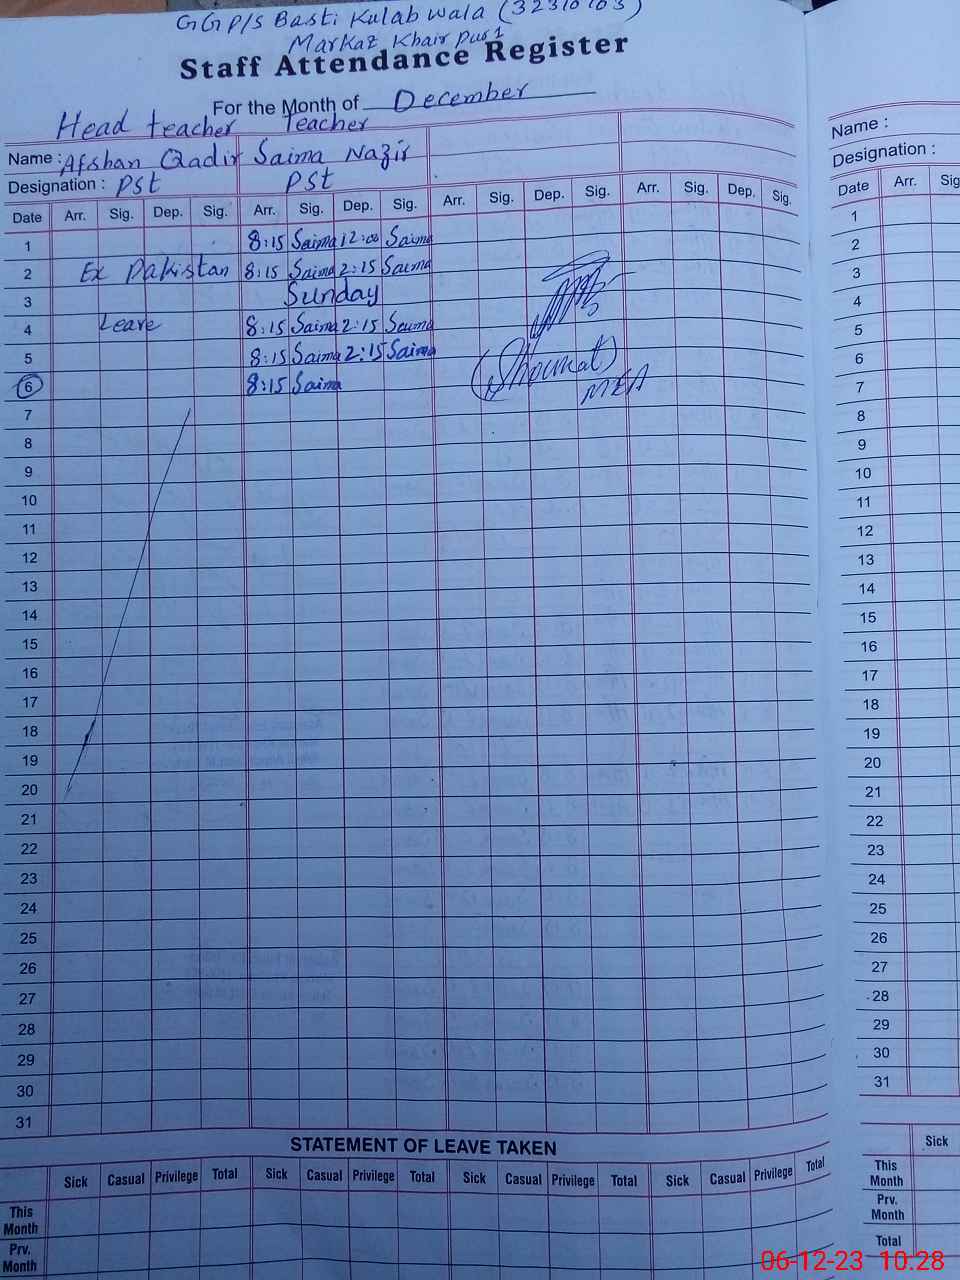 GGP/S Basti Kulab wala (32310103)
Markaz Khair pur 1
Staff Attendance Register
For the Month of December
Head teacher Teacher
Name : Afshan Qadir Saima Nazir
Designation : PSt PST
Date Arr. Sig. Dep. Sig. Arr. Sig. Dep. Sig. Arr. Sig. Dep. Sig. Arr. Sig. Dep. Sig.
1 8:15 Saima 12:00 Saima
2 Ex Pakistan 8:15 Saima 2:15 Saima
3 Sunday
4 Leave 8:15 Saima 2:15 Saima
5 8:15 Saima 2:15 Saima
(Shoukat)
6 8:15 Saima MEA
7
8
9
10
11
12
13
14
15
16
17
18
19
20
21
22
23
24
25
26
27
28
29
30
31
STATEMENT OF LEAVE TAKEN
Sick Casual Privilege Total Sick Casual Privilege Total Sick Casual Privilege Total Sick Casual Privilege Total
This Month
Prv. Month
Name :
Designation :
Date Arr. Sig
1
2
3
4
5
6
7
8
9
10
11
12
13
14
15
16
17
18
19
20
21
22
23
24
25
26
27
28
29
30
31
Sick
This Month
Prv. Month
Total
06-12-23 10:28